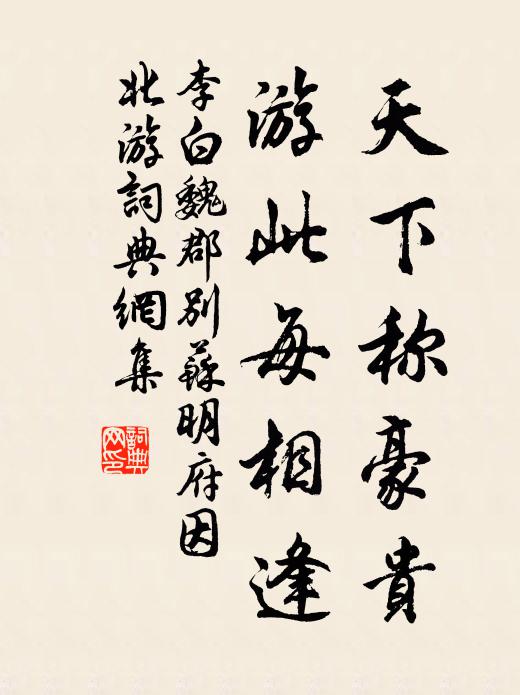 天下称豪貴
游此每相逢
李白魏郡别蘇明府因
北游詞典網集
詞典网印